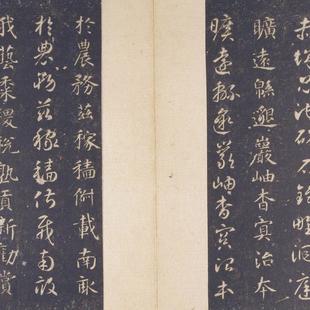 赤城昆池碣石鉅野洞庭
曠遠緜邈巖岫杳冥治本
曠遠緜邈巖岫杳冥治本
於農務茲稼穡俶載南畝
於農務茲稼穡俶載南畝
我藝黍稷稅熟貢新勸賞